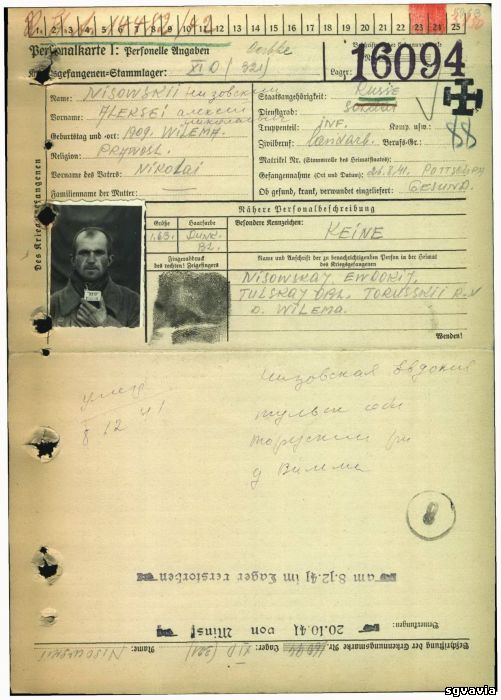 1. 2. 3. 4. 5. 6. 7. 8. 9. 10. 11. 12. 13. 14. 15. 16. 17. 18. 19. 20. 21. 22. 23. 24. 25
Personalkarte I: Personelle Angaben
Kriegsgefangenen-Stammlager: XI D (321)
Lager: 16094
Des Kriegsgefangenen
Name: NISOWSKII низовский
Vorname: ALEKSEI алексей николаевич
Geburtstag und -ort: 1909. WILEMA.
Religion: PRAWOSL.
Vorname des Vaters: Nikolai
Familienname der Mutter:
Staatsangehörigkeit: Rusie
Dienstgrad: Soldat
Truppenteil: INF. Komp. usw.:
Zivilberuf: Landarb. Berufs-Gr.:
Matrikel Nr. (Stammrolle des Heimatstaates):
Gefangennahme (Ort und Datum): 26.8.41.
Ob gesund, krank, verwundet eingeliefert: GESUND.
Nähere Personalbeschreibung
Größe Haarfarbe
1.63. DUNK. BL.
Besondere Kennzeichen:
KEINE
Fingerabdruck
des rechten! Zeigefingers
Name und Anschrift der zu benachrichtigenden Person in der Heimat
des Kriegsgefangenen
NISOWSKAY EWDOKIJ.
TULSKAY OBL. TORUSSKII R.N
D. WILEMA.
Wenden!
умер
8 12 41
низовская Евдокия
тульск обл
Торуский рн
д Вилема
8
am 8.12.41 im Lager verstorben
20.10.41 von Minsk
Bemerkungen:
Beschriftung der Erkennungsmarke Nr. 16094 Lager: XI D (321) Name: NISOWSKII
sgvavia